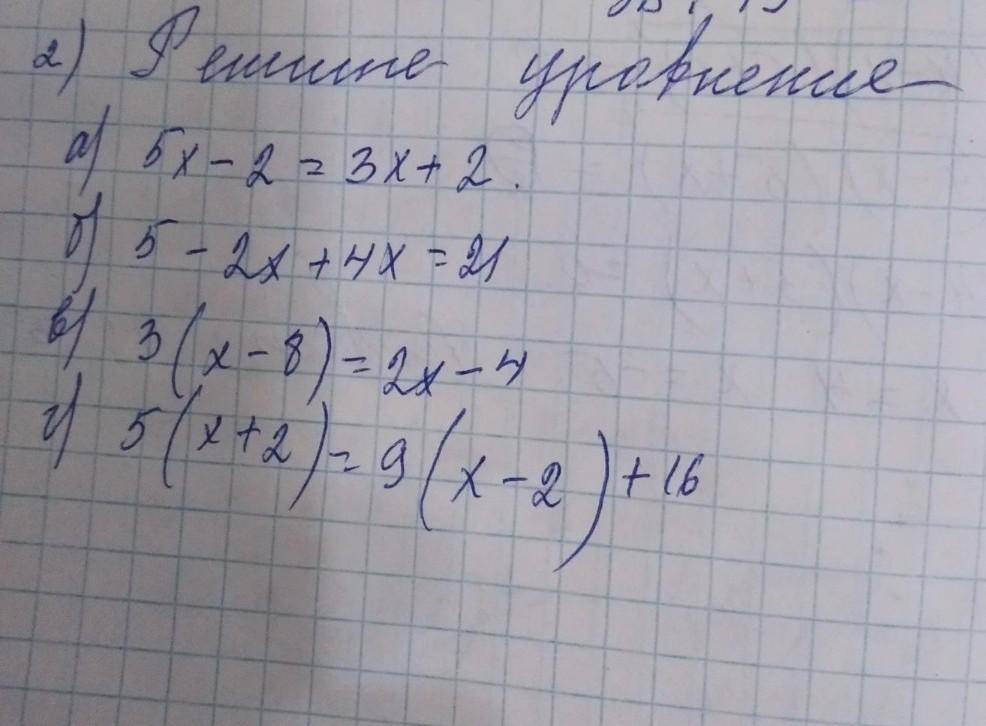 2) Решите уравнение
а) 5x - 2 = 3x + 2.
б) 5 - 2x + 4x = 21
в) 3(x - 8) = 2x - 4
г) 5(x + 2) = 9(x - 2) + 16